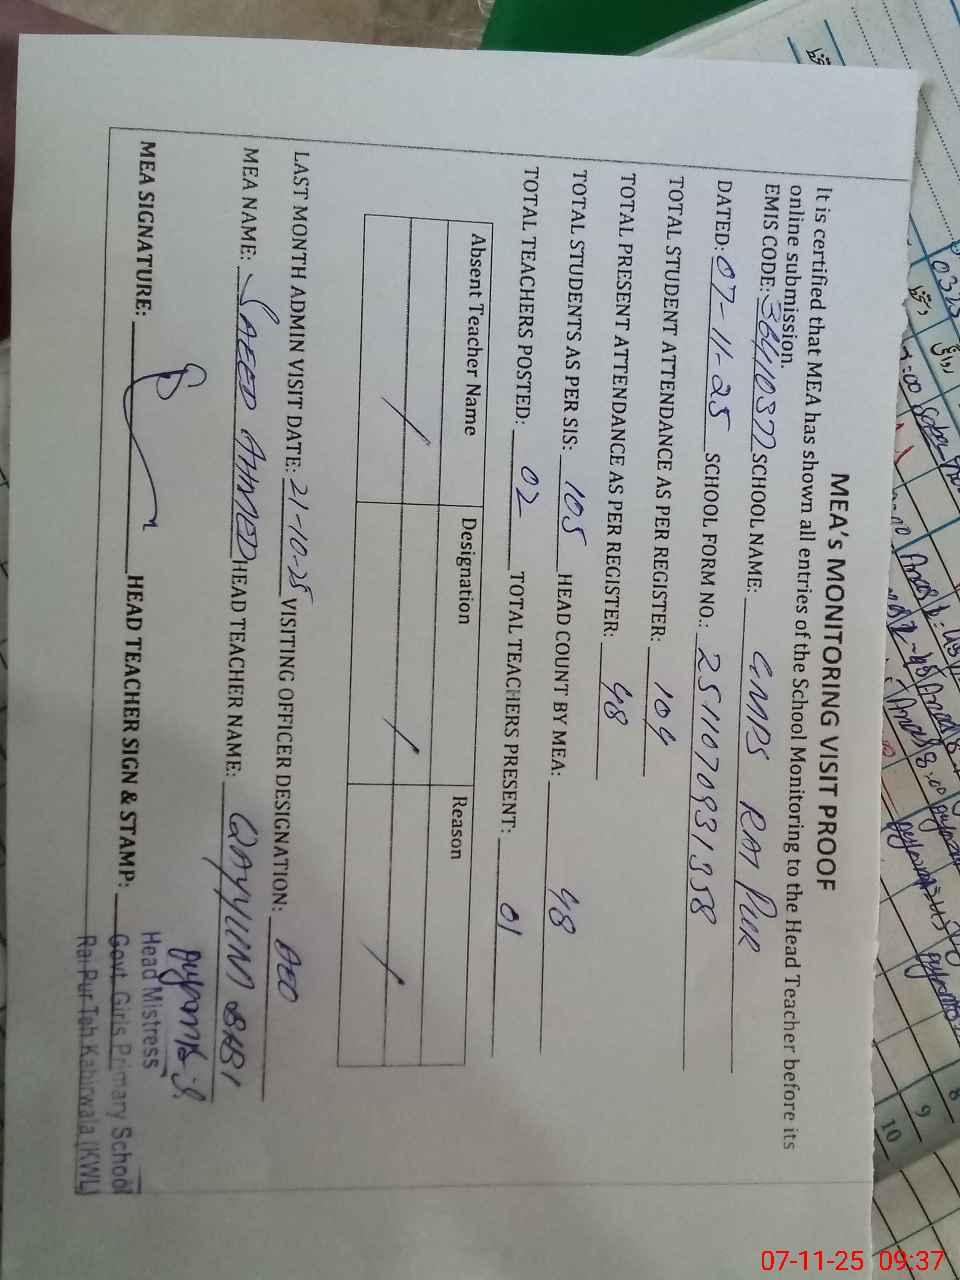 MEA's MONITORING VISIT PROOF
It is certified that MEA has shown all entries of the School Monitoring to the Head Teacher before its
online submission.
EMIS CODE: 36410377 SCHOOL NAME: GMPS RAI PUR
DATED: 07-11-25 SCHOOL FORM NO.: 2511070931358
TOTAL STUDENT ATTENDANCE AS PER REGISTER: 104
TOTAL PRESENT ATTENDANCE AS PER REGISTER: 48
TOTAL STUDENTS AS PER SIS: 105 HEAD COUNT BY MEA: 48
TOTAL TEACHERS POSTED: 02 TOTAL TEACHERS PRESENT: 01
Absent Teacher Name Designation Reason
LAST MONTH ADMIN VISIT DATE: 21-10-25 VISITING OFFICER DESIGNATION: AEO
MEA NAME: SAEED AHMED HEAD TEACHER NAME: QAYYUM BIBI
MEA SIGNATURE: HEAD TEACHER SIGN & STAMP:
Head Mistress
Govt. Girls Primary School
Rai Pur Teh Kabirwala (KWL)
0323
8
9
10
07-11-25 09:37